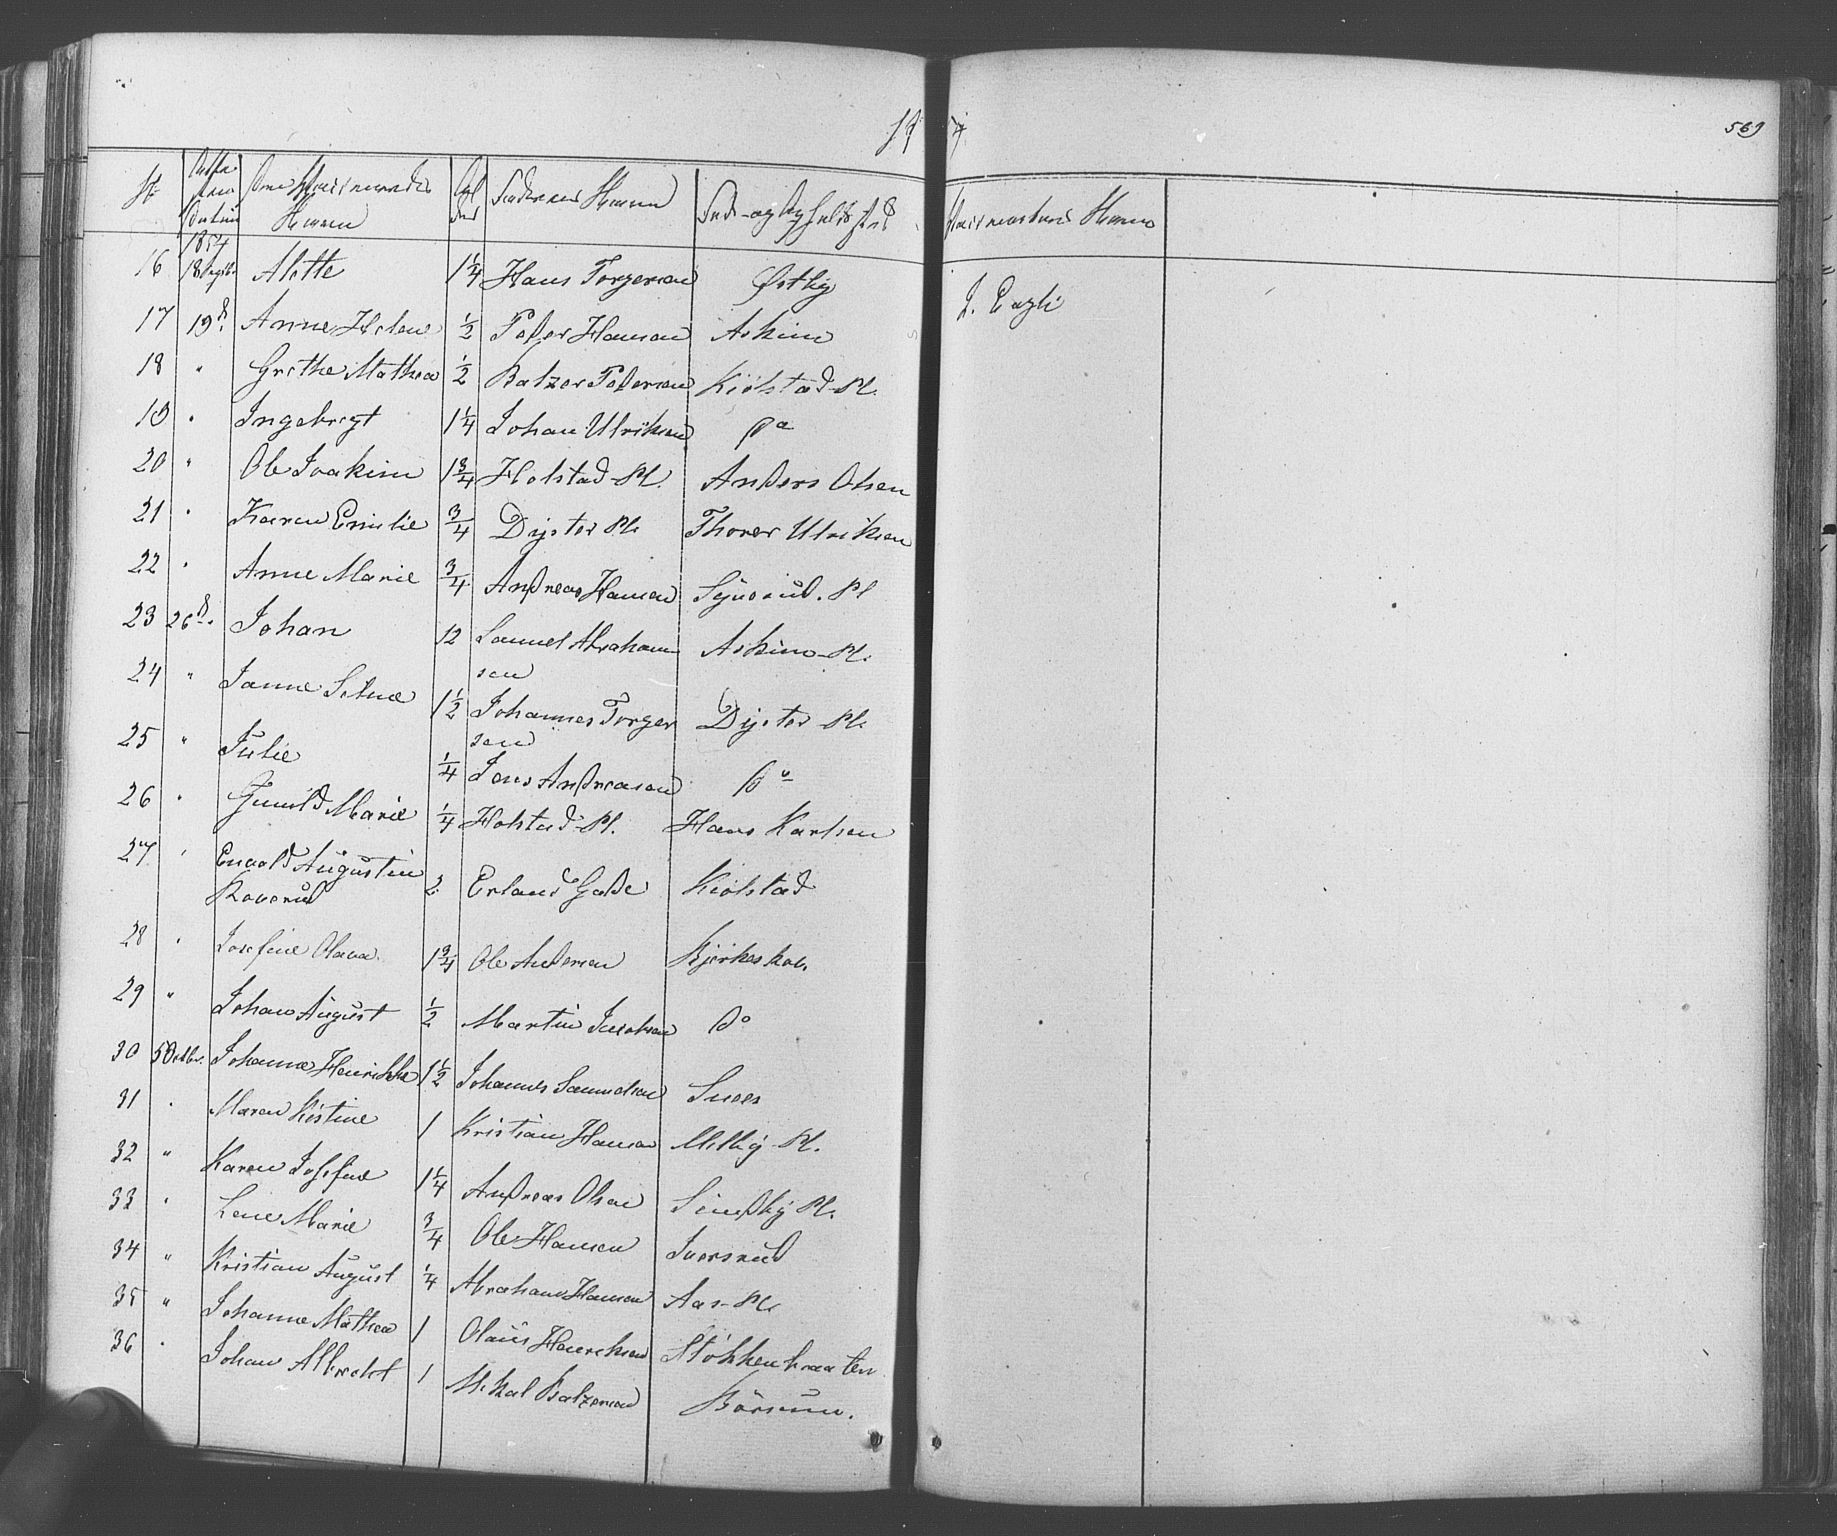 569
No
Datum
1854
Navn
Faderens Navn
Føde- og Opholdssted
Navn
16 Alette 1 1/4 Hans Torgersen Østby
J. Engh
17 19 do. Anne Helene 1/2 Peder Hansen Askim
18 " Grethe Mathea 1/2 Balzer Pedersen Kiölstad Pl.
19 " Ingebrigt 1 1/4 Johan Ulriksen do
20 " Ole Joakim 1 3/4 Holstad Pl. Anders Olsen
21 " Karen Emilie 3/4 Dyster Pl. Thorer Ulriksen
22 " Anne Marie 3/4 Andreas Hansen Pl
23 26 do. Johan 12 Samuel Abraham
sen Askim-Pl.
24 " Janne 1 1/2 Johannes Torger
sen Dyster Pl.
25 " Julie 1/4 Jens Andreasen do
26 " Gunild Marie 1/4 Holstad-Pl. Hans Karlsen
27 " Augustin
2 Erland Kiölstad
28 " Josefine Olava 1 3/4 Ole Andersen
29 " Johan August 1/2 Martin Jacobsen do
30 5 Octbr. Johanne Henrikke 1 1/2 Johannes Samuelsen
31 " Maren Kistine 1 Kristian Hansen Pl.
32 " Karen Josefine 1 1/4 Andreas Olsen Pl.
33 " Lene Marie 3/4 Ole Hansen Iversrud
34 " Kristian August 1/4 Abraham Hansen Aas-Pl.
35 " Johanne Mathea 1 Olaüs Henriksen Stökkenbraaten
36 " Johan Albrecht 1 Mikal Balzersen